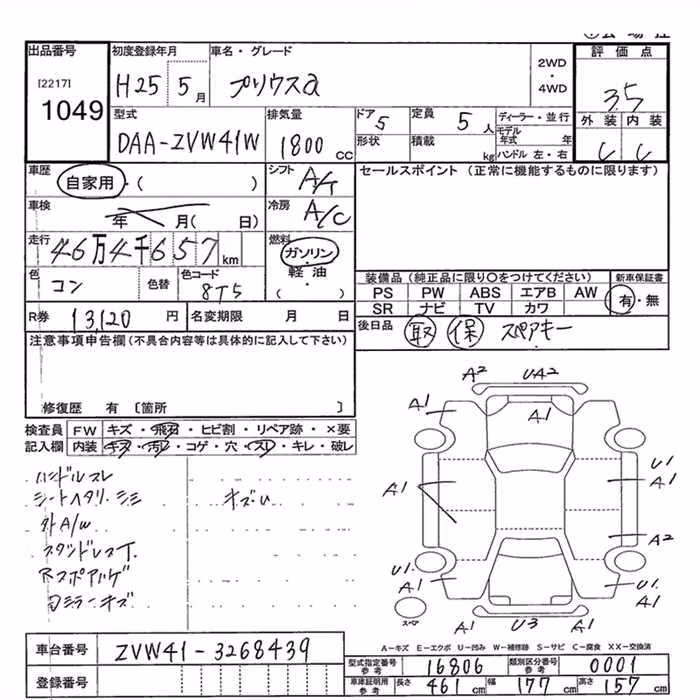 出品番号 初度登録年月 車名・グレード 2WD・4WD 評価点
[2217] 1049 H25 5月 プリウスα 3.5
型式 排気量 ドア 定員 ディーラー・並行 外装 内装
DAA-ZVW41W 1800cc 5 5人 モデル年式 年 C C
形状 積載 kg ハンドル 左・右
車歴 自家用・( ) シフト A/T セールスポイント (正常に機能するものに限ります)
車検 年 月( 日) 冷房 A/C
走行 46万4千657km 燃料 ガソリン・軽油・( )
色 コン 色替 色コード 8T5
装備品 (純正品に限り○をつけてください) 新車保証書
PS PW ABS エアB AW 有・無
SR ナビ TV カワ
R券 13,120円 名変期限 月 日 後日品 取 保 スペアキー
注意事項申告欄(不具合内容等は具体的に記入して下さい)
修復歴 有 [箇所 ]
検査員記入欄 FW キズ・飛石・ヒビ割・リペア跡・×要
内装 キズ・汚レ・コゲ・穴・スレ・キレ・破レ
ハンドルスレ
シートヘタリ・シミ キズU
外A/W
スタッドレスT.
Rスポアゲハゲ
ミラーキズ
A2 UA2
A1 A1
A1 U1 A1
A2
U1. A1 U1. A1
スペア A1 U3 A1
A-キズ E-エクボ U-凹み W-補修跡 S-サビ C-腐食 XX-交換済
車台番号 ZVW41-3268439
登録番号
型式指定番号参考 16806 類別区分番号参考 0001
車庫証明用参考 長さ 461cm 幅 177cm 高さ 157cm